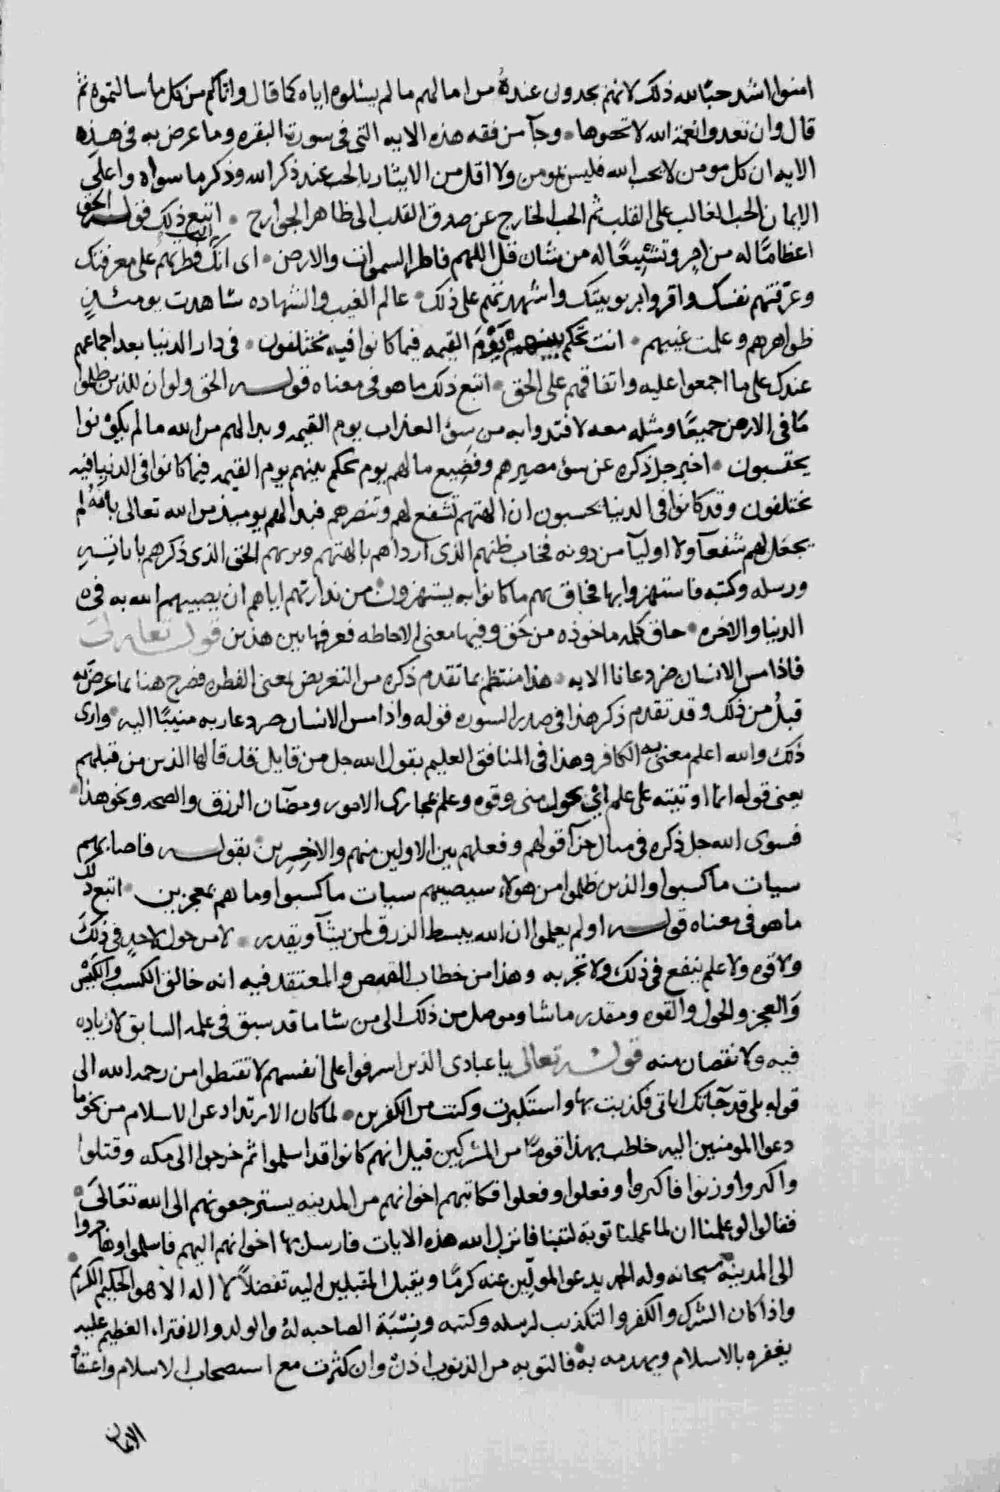 امنوا اشد حبا لله ذلك لانهم يجدون عنده من امالهم ما لم يسئلوه اياه كما قال واتاكم من كل ما سالتموه ثم
قال وان تعدوا نعمة الله لا تحصوها وجآ من فقه هذه الايه التى فى سورة البقره وما عرض به فى هذه
الايه ان كل مومن لا يحب الله فليس بمومن ولا اقل من الايثار بالحب عند ذكر الله وذكر ما سواه واعلى
الايمان الحب الغالب على القلب ثم الحب الخارج عن صدق القلب الى ظاهر الجوارح اتبع ذلك قوله الحق
اعظاما له من اجر وتشييعا له من شان قل اللهم فاطر السموات والارض اى انك فطرتهم على معرفتك
وعرفتهم نفسك واقروا بربوبيتك واشهدتهم على ذلك عالم الغيب والشهاده شاهدت يومئذ
ظواهرهم وعلمت غيبهم انت تحكم بينهم يوم القيمه فيما كانوا فيه يختلفون فى دار الدنيا بعد اجماعهم
عندك على ما اجمعوا عليه واتفاقهم على الحق اتبع ذلك ما هو فى معناه قوله الحق ولو ان للذين ظلموا
ما فى الارض جميعا ومثله معه لافتدوا به من سؤ العذاب يوم القيمه وبدا لهم من الله ما لم يكونوا
يحتسبون اخبر جل ذكره عن سؤ مصيرهم وفضيع ما لهم يوم تحكم بينهم يوم القيمه فيما كانوا فى الدنيا فيه
يختلفون وقد كانوا فى الدنيا يحسبون ان الهتهم تشفع لهم وتنصرهم فبدا لهم يوميذ من الله تعالى بانه لم
يجعل لهم شفعآ ولا اوليآ من دونه فخاب ظنهم الذى ارداهم بالهتهم وبربهم الحق الذى ذكرهم باياته
ورسله وكتبه فاستهزوا بها فحاق بهم ما كانوا به يستهزون من نذارتهم اياهم ان يصيبهم الله به فى
الدنيا والاخره حاق كلمه ماخوذه من حق وفيها معنى الاحاطه فعرفها بين هذين قوله تعالى
فاذا مس الانسان ضر دعانا الايه هذا منتظم بما تقدم ذكره من التعريض لمعنى الفطره فصرح هنا بما عرض به
قبل من ذلك وقد تقدم ذكر هذا فى صدر السوره قوله واذا مس الانسان ضر دعا ربه منيبا اليه وارى
ذلك والله اعلم معنى به الكافر وهذا فى المنافق العليم يقول الله جل من قايل قد قالها الذين من قبلهم
يعنى قوله انما اوتيته على علم اى بحول منى وقوه وعلم بمجارى الامور ومضآن الرزق والصحه ونحو هذا
فسوى الله جل ذكره فى مآل جزآ قولهم وفعلهم بين الاولين منهم والاخرين بقوله فاصابهم
سيات ما كسبوا والذين ظلموا من هولاء سيصيبهم سيات ما كسبوا وما هم بمعجزين اتبع ذلك
ما هو فى معناه قوله اولم يعلموا ان الله يبسط الرزق لمن يشآ ويقدر لا من حول لاحد فى ذلك
ولا قوه ولا علم ينفع فى ذلك ولا تجربه وهذا من خطاب القصص والمعتقد فيه انه خالق الكسب والكيس
والعجز والحول والقوه ومقدر ما شا وموصل من ذلك الى من شا ما قد سبق فى علمه السابق لا زياده
فيه ولا نقصان منه قوله تعالى يا عبادى الذين اسرفوا على انفسهم لا تقنطوا من رحمه الله الى
قوله بلى قد جآتك اياتى فكذبت بها واستكبرت وكنت من الكفرين لما كان الارتداد عن الاسلام من نحو ما
دعوا المومنين اليه خاطب بهذا قوما من المشركين قيل انهم كانوا قد اسلموا ثم خرجوا الى مكه وقتلوا
واكروا وزنوا فاكبروا وفعلوا وفعلوا فكاتبهم اخوانهم من المدينه يسترجعونهم الى الله تعالى
فقالوا لو علمنا ان لما عملنا توبة لتبنا فانزل الله هذه الايات فارسل بها اخوانهم اليهم فاسلموا وهاجروا
الى المدينه سبحانه وله الحمد يدعو المولين عنه كرما ويقبل المقبلين اليه تفضلا لا اله الا هو الحكيم الكريم
واذا كان الشرك والكفر والتكذيب لرسله وكتبه ونسبة الصاحبه له والولد والافتراء العظيم عليه
يغفره بالاسلام ويهدمه به فالتوبه من الذنوب اذن وان كثرت مع استصحاب الاسلام واعتقاد
الايمان